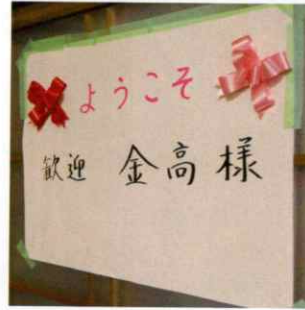 ようこそ
歓迎 金高様